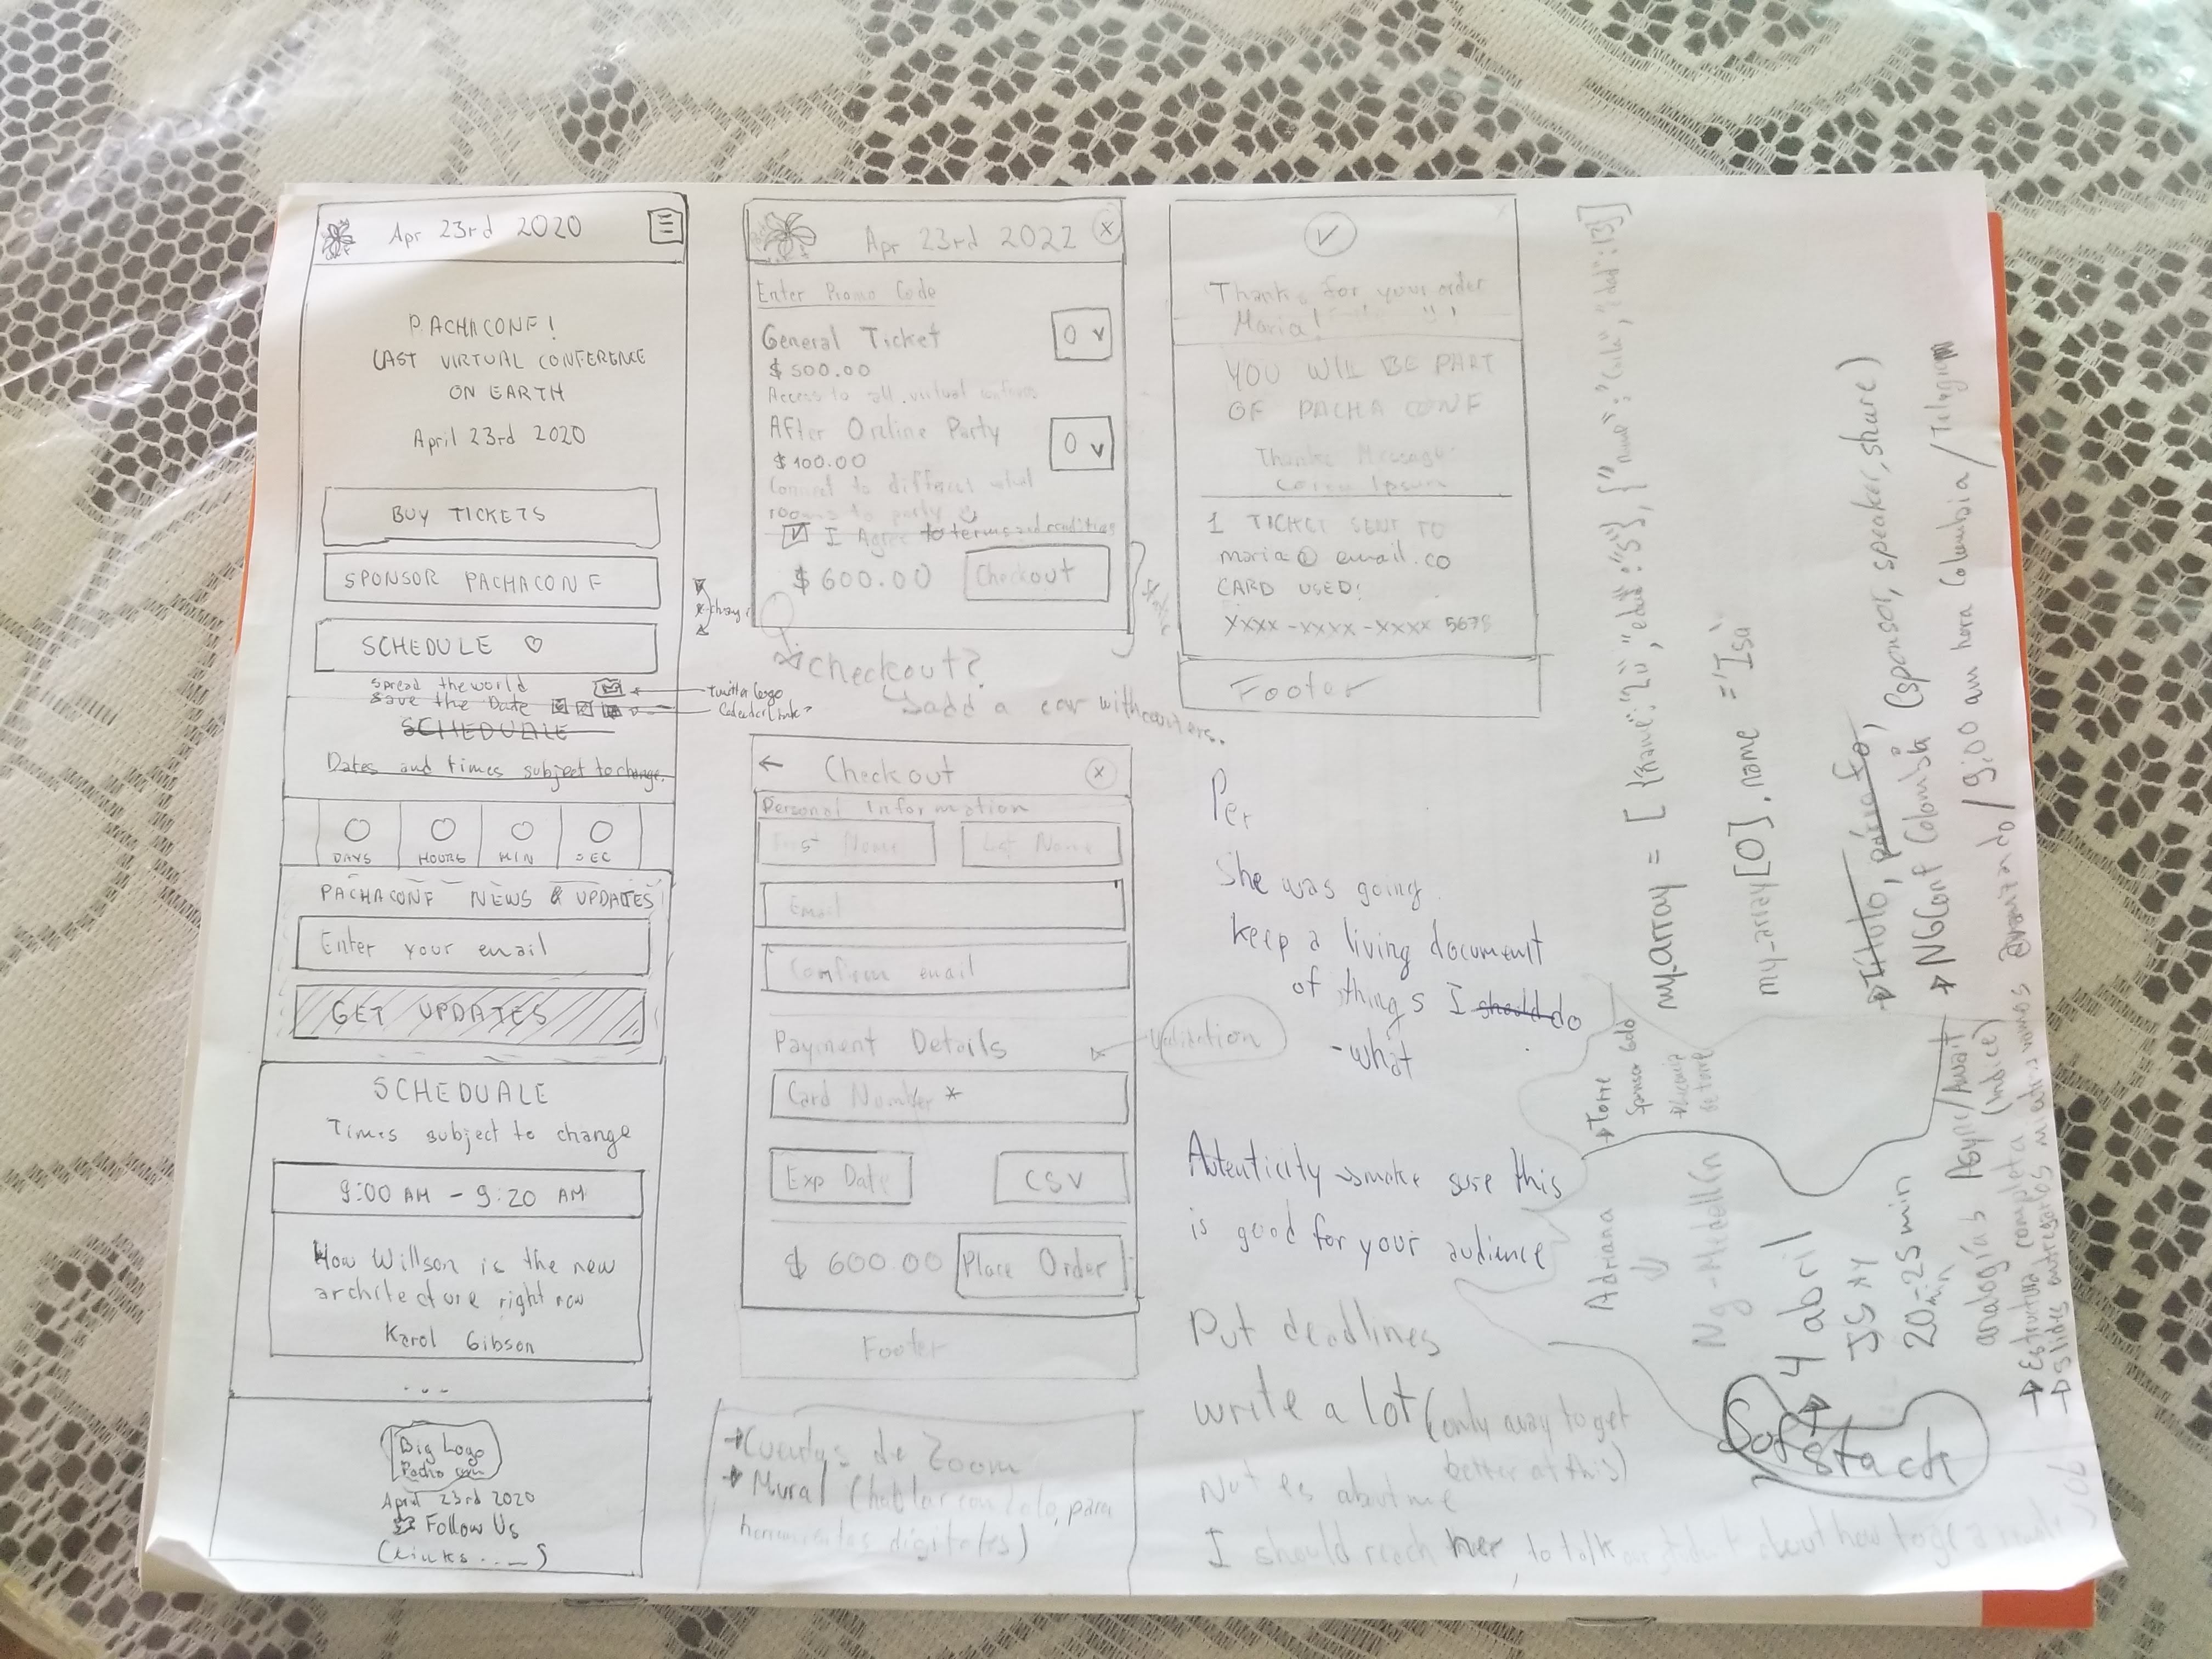 Apr 23rd 2020
PACHACONF!
LAST VIRTUAL CONFERENCE
ON EARTH
April 23rd 2020
BUY TICKETS
SPONSOR PACHACONF
SCHEDULE
Spread the world
Save the Date
Twitter logo
SCHEDUALE
Dates and times subject to change.
0 0 0 0
DAYS HOURS MIN SEC
PACHACONF NEWS & UPDATES
Enter your email
GET UPDATES
SCHEDUALE
Times subject to change
9:00 AM - 9:20 AM
How Willson is the new
architecture right now
Karol Gibson
...
Big Logo
April 23rd 2020
Follow Us
(Links....)
Apr 23rd 2022 X
Enter Promo Code
General Ticket 0 v
$500.00
Access to all virtual
After Online Party 0 v
$100.00
Connect to different
rooms to party
I Agree to terms and conditions
$600.00 Checkout
checkout?
add a car with counters.
← Checkout X
Personal Information
First Name Last Name
Email
Confirm email
Payment Details
Validation
Card Number *
Exp Date CSV
$ 600.00 Place Order
Footer
→ Cuentas de Zoom
→ Mural (hablar con Lolo, para
herramientas digitales)
Thanks for your order
Maria!
YOU WILL BE PART
OF PACHA CONF
Thanks Message
Lorem Ipsum
1 TICKET SENT TO
maria@email.co
CARD USED:
XXXX-XXXX-XXXX 5678
Footer
Per
She was going
keep a living document
of things I should do
-what
Autenticity → make sure this
is good for your audience
Put deadlines
write a lot (only away to get
better at this)
Not es about me
I should reach her, to talk about how to
my_array = [{"name":
my_array[0].name = "Isa"
→ Título, párrafo,
→ NGConf Colombia (sponsor, speaker, share)
9:00 am hora Colombia / Telegram
→ Torre
Sponsor Gold
Adriana
Ng-Medellín
→ 4 abril
JS
20-25 min
analogías Async/Await
→ Estructura completa (índice)
→ slides entregarlos
Sofstack